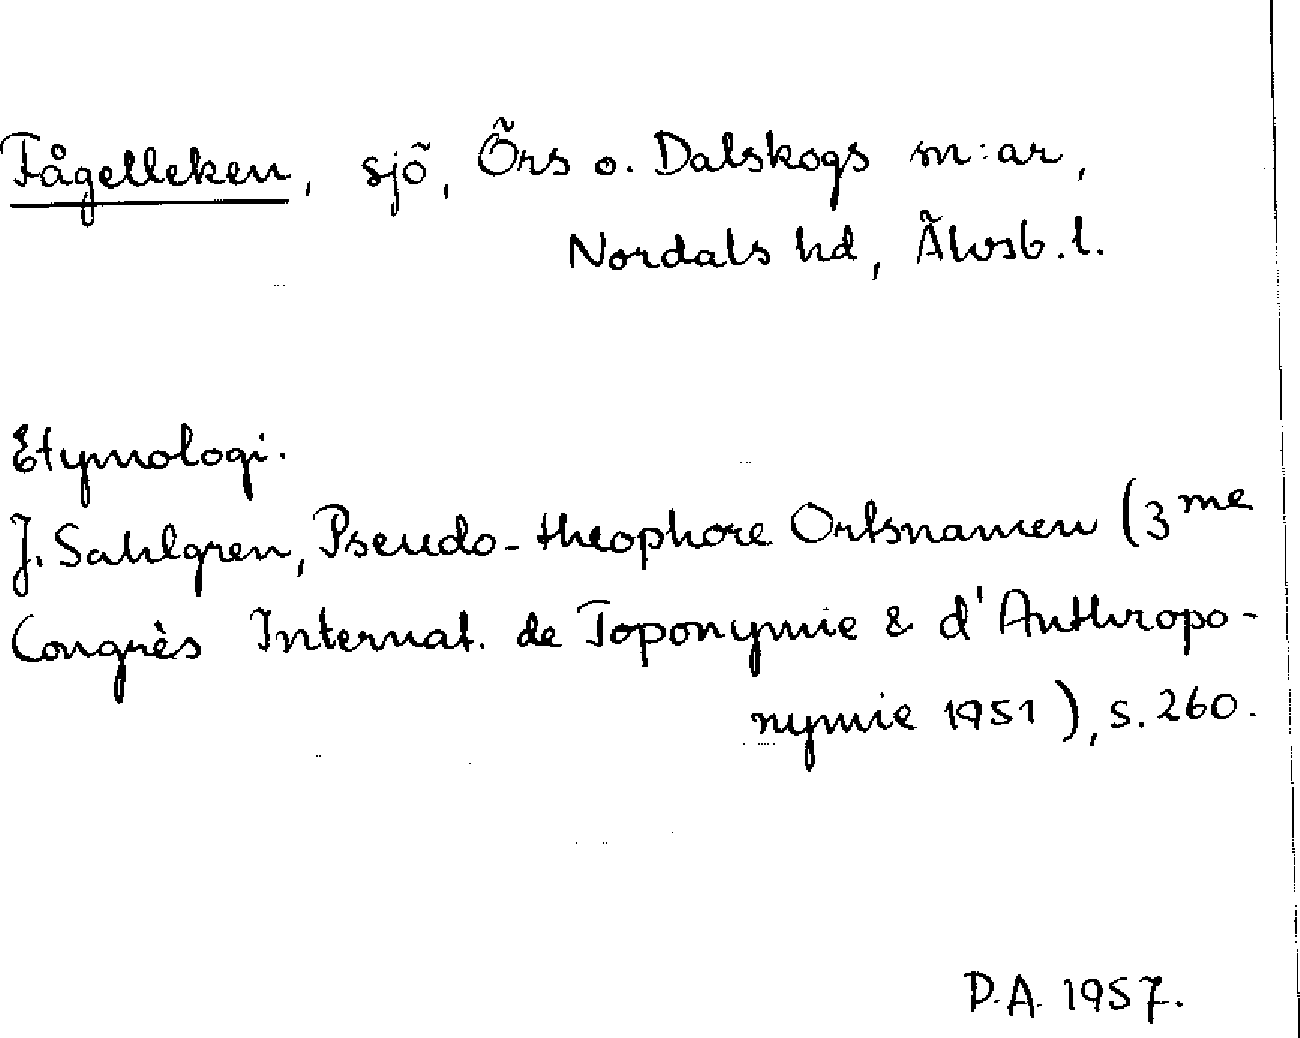 Fågelleken, sjö, Örs o. Dalskogs m:ar,
Nordals hd, Älvsb. l.
Etymologi.
J. Sahlgren, Pseudo-theophore Ortsnamen (3me
Congrès Internat. de Toponymie & d'Anthropo-
nymie 1951), s. 260.
D.A. 1957.